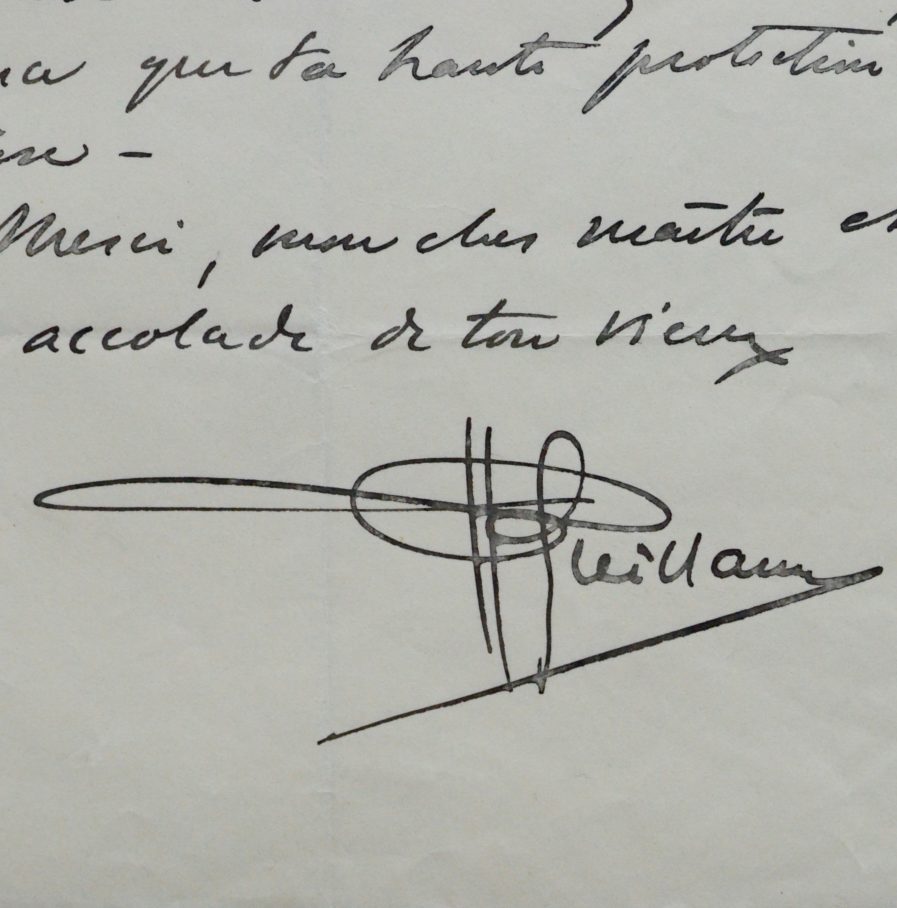 que ta haute protection
Merci, mon cher maître et
accolade de ton vieux